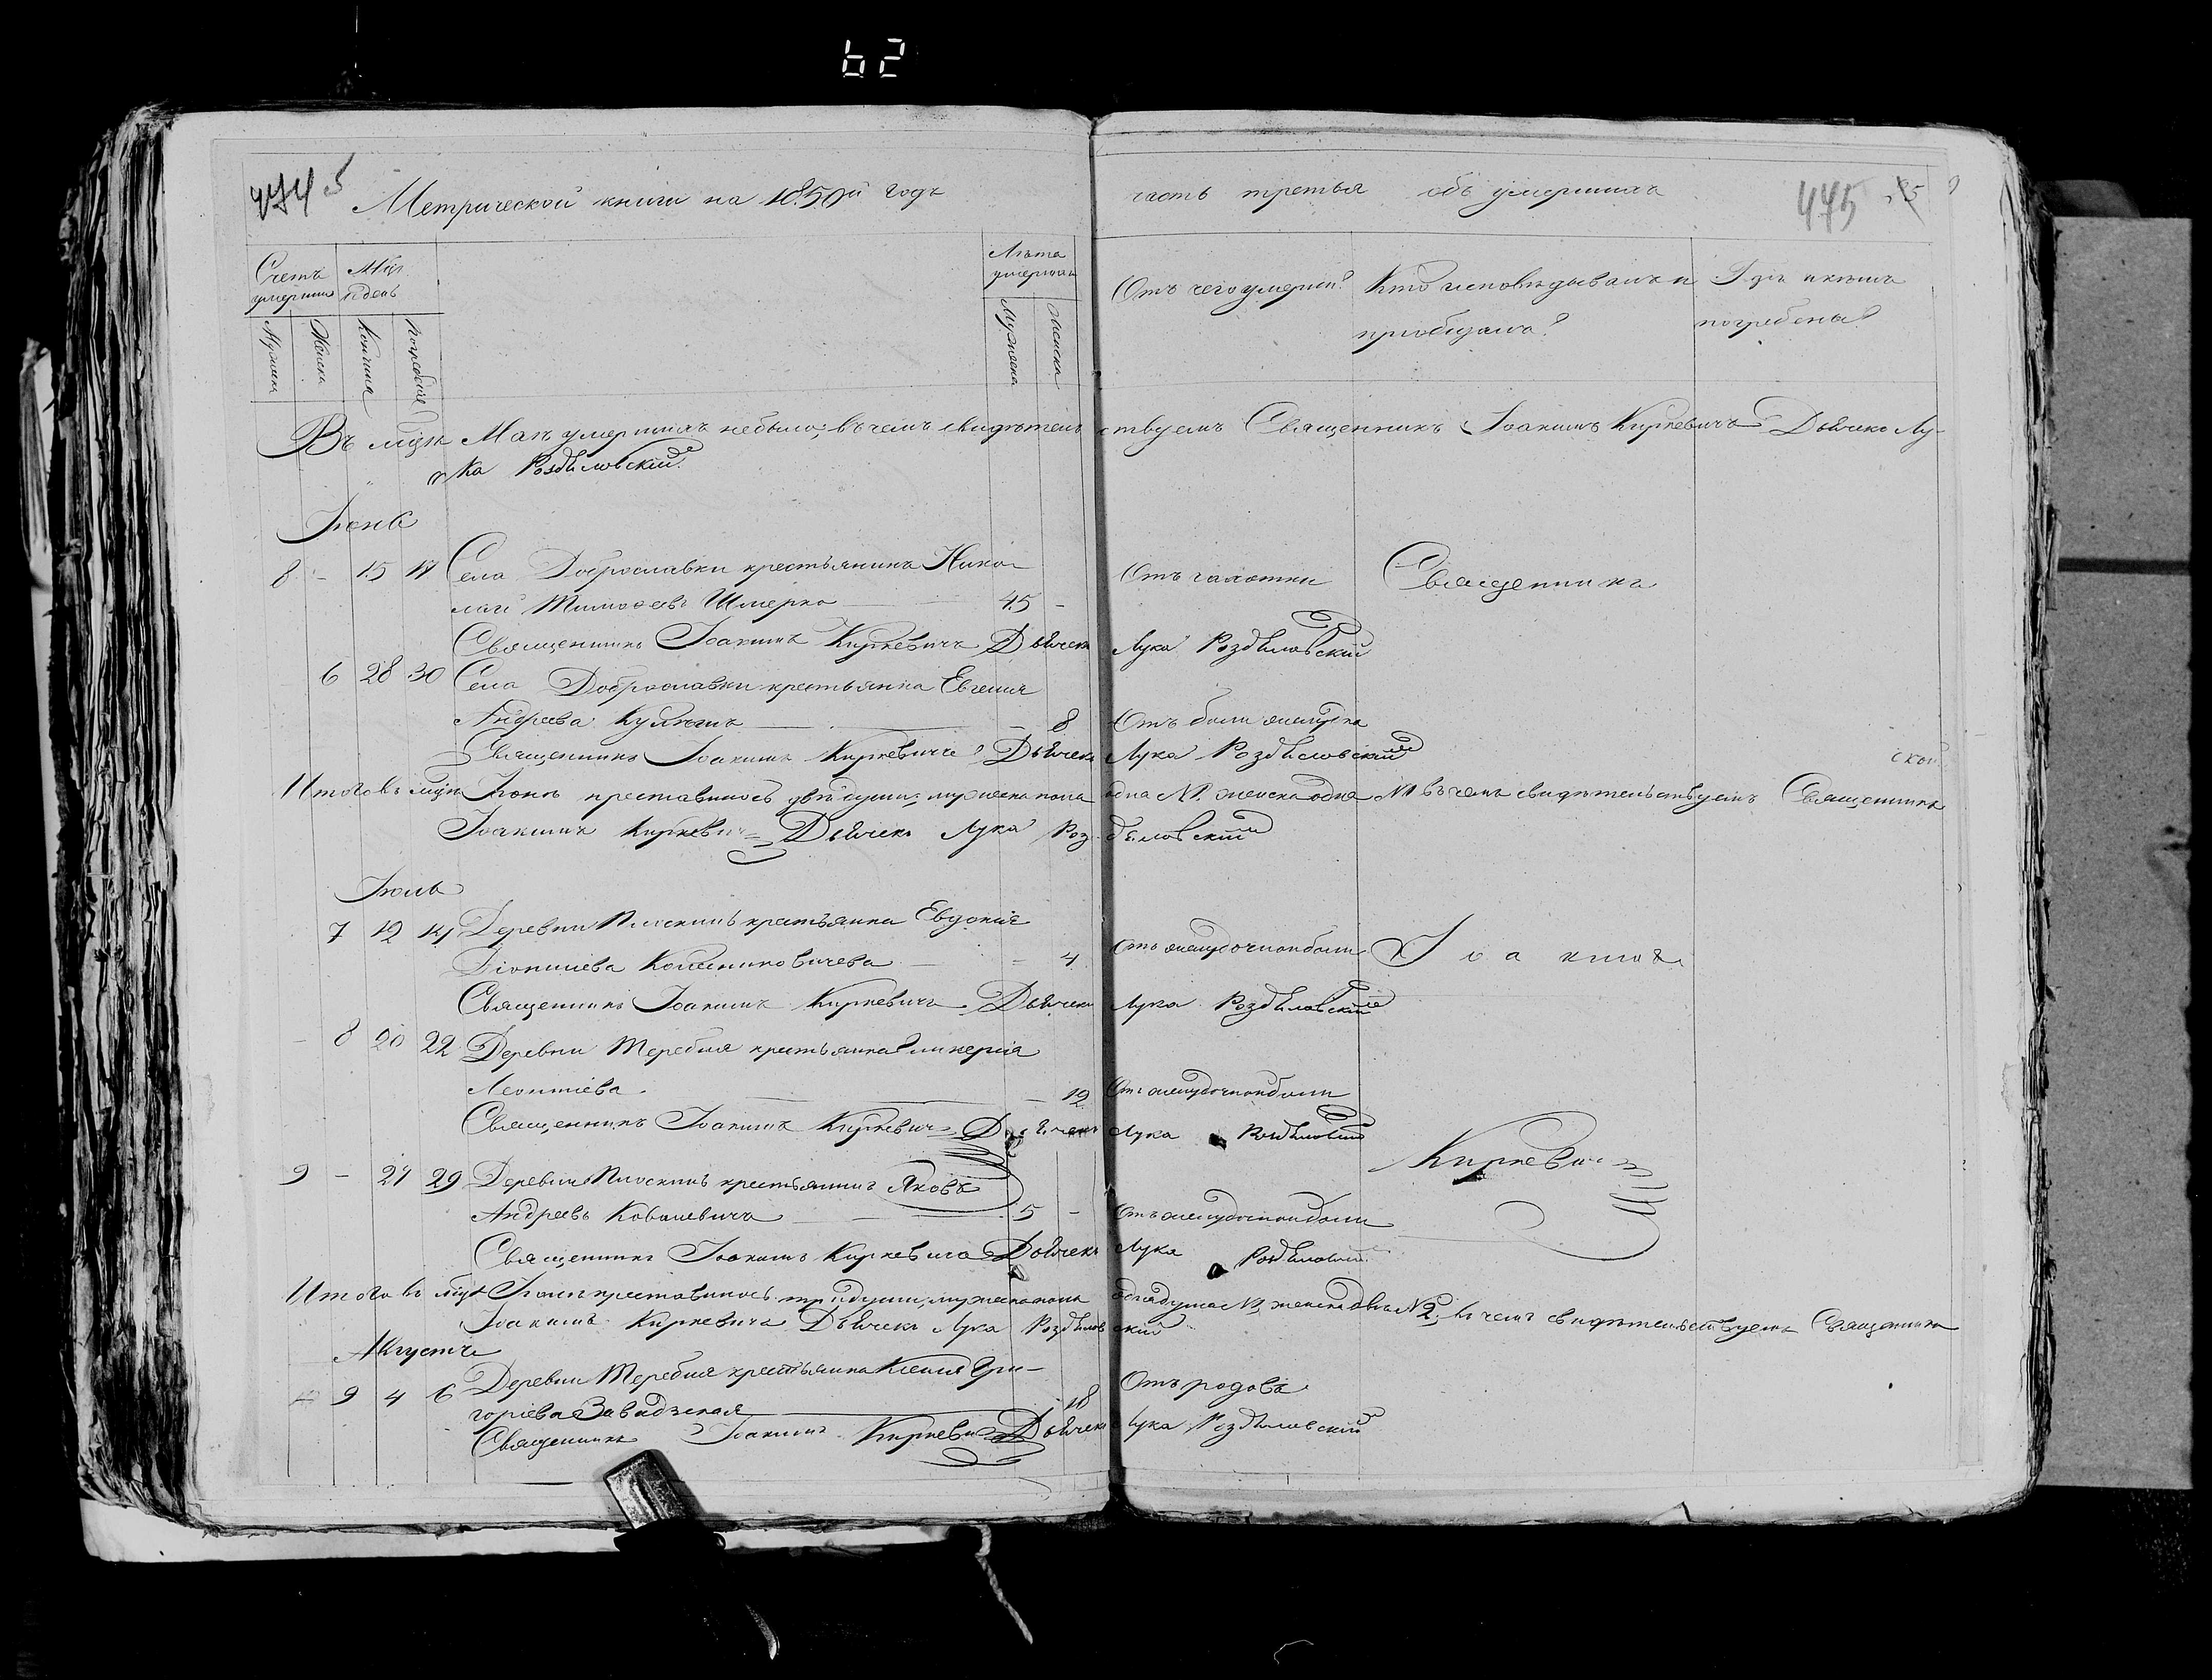 62
474 5
Метрической книги на 1850й годъ
часть третья объ умершихъ
445
Счетъ умершихъ
Мцъ и день
Лѣта умершихъ
Отъ чего умерли?
Кто исповѣдывалъ и пріобщалъ?
Гдѣ и кѣмъ погребены?
Мужеска
Женска
Кончина
Погребеніе
Мужеска
Женска
Въ мцѣ Маѣ умершихъ небыло, въ чемъ свидѣтельствуемъ Священникъ Іоакимъ Киркевичъ Дьячекъ Лу-
ка Роздяловскій
Іюнь
8 - 15 17 Села Доброславки крестьянинъ Нико-
лай Тимофеевъ Шмерко 45 - Отъ чахотки Священникъ
Священникъ Іоакимъ Киркевичъ Дьячекъ Лука Роздяловскій
6 28 30 Села Доброславки крестьянка Евгенія
Андреева - 8 Отъ боли желудка
Священникъ Іоакимъ Киркевичъ Дьячекъ Лука Роздяловскій
Итого въ мцѣ Іюнѣ преставилось двѣ души, мужеска пола одна №1 женска одна №1 въ чемъ свидѣтельствуемъ Священникъ
Іоакимъ Киркевичъ Дьячекъ Лука Роздяловскій
Іюль
7 12 14 Деревни Плоскинь крестьянка Евдокія
- 4 Отъ желудочной боли Іоакимъ
Священникъ Іоакимъ Киркевичъ Дьячекъ Лука Роздяловскій
- 8 20 22 Деревни Теребня крестьянка Гликерія
Леонтіева - 12 Отъ желудочной боли
Священникъ Іоакимъ Киркевичъ Дьячекъ Лука Роздяловскій
Киркевичъ
9 - 27 29 Деревни Плоскинь крестьянинъ Яковъ
Андреевъ Ковалевичъ 5 - Отъ желудочной боли
Священникъ Іоакимъ Киркевичъ Дьячекъ Лука Роздяловскій
Итого въ мцѣ Іюлѣ преставилось три души, мужеска пола одна душа №1, женска двѣ №2, въ чемъ свидѣтельствуемъ Священникъ
Іоакимъ Киркевичъ Дьячекъ Лука Роздяловскій
Августъ
9 4 6 Деревни Теребня крестьянка Ксенія Гри-
горіева Завадзская 18 Отъ родовъ
Священникъ Іоакимъ Киркевичъ Дьячекъ Лука Роздяловскій